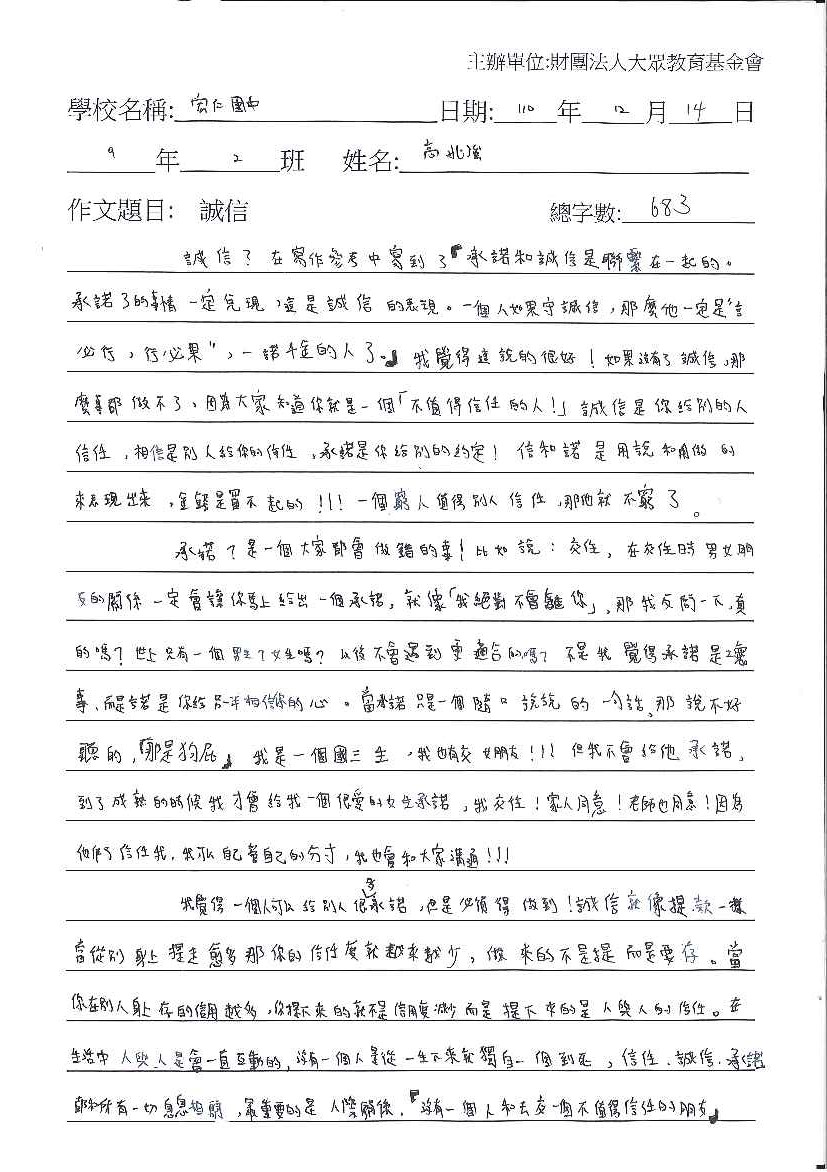 主辦單位:財團法人大眾教育基金會
學校名稱: 宏仁國中 日期: 110 年 12 月 14 日
9 年 2 班 姓名: 高兆
作文題目: 誠信 總字數: 683
誠信？在寫作參考中寫到了『承諾和誠信是聯繫在一起的。
承諾了的事情一定兌現，這是誠信的表現。一個人如果守誠信，那麼他一定是"言
必行，行必果"，一諾千金的人了。』我覺得這說的很好！如果沒有了誠信，那
麼事都做不了，因為大家知道你就是一個「不值得信任的人！」誠信是你給別的人
信任，相信是別人給你的信任，承諾是你給別的約定！信和諾是用說和用做的
來表現出來，金錢是買不起的!!!一個窮人值得別人信任，那他就不窮了。
承諾？是一個大家都會做錯的事！比如說：交往，在交往時男女朋
友的關係一定會讓你馬上給出一個承諾，就像「我絕對不會離你」，那我反問一下，真
的嗎？世上只有一個男生了女生嗎？以後不會遇到更適合的嗎？不是我覺得承諾是壞
事、而是諾是你給另一半相信你的心。當承諾只是一個隨口說說的一句話，那說不好
聽的，『那是狗屁』我是一個國三生，我也有交女朋友!!!但我不會給他承諾，
到了成熟的時候我才會給我一個很愛的女生承諾，我交往！家人同意！老師也同意！因為
他們信任我，我可以自己管自己的分寸，我也會和大家溝通!!!
我覺得一個人可以給別人很多承諾，但是必須得做到！誠信就像提款一樣
當從別身上提走愈多那你的信任度就越來越少，做來的不是提而是要存。當
你在別人身上存的信用越多，你提下來的就不是信用度減少而是提下來的是人與人的信任。在
生活中人與人是會一直互動的，沒有一個人是從一生下來就獨自一個到死，信任、誠信、承諾
都和所有一切息息相關，最重要的是人際關係，『沒有一個人和去交一個不值得信任的朋友』